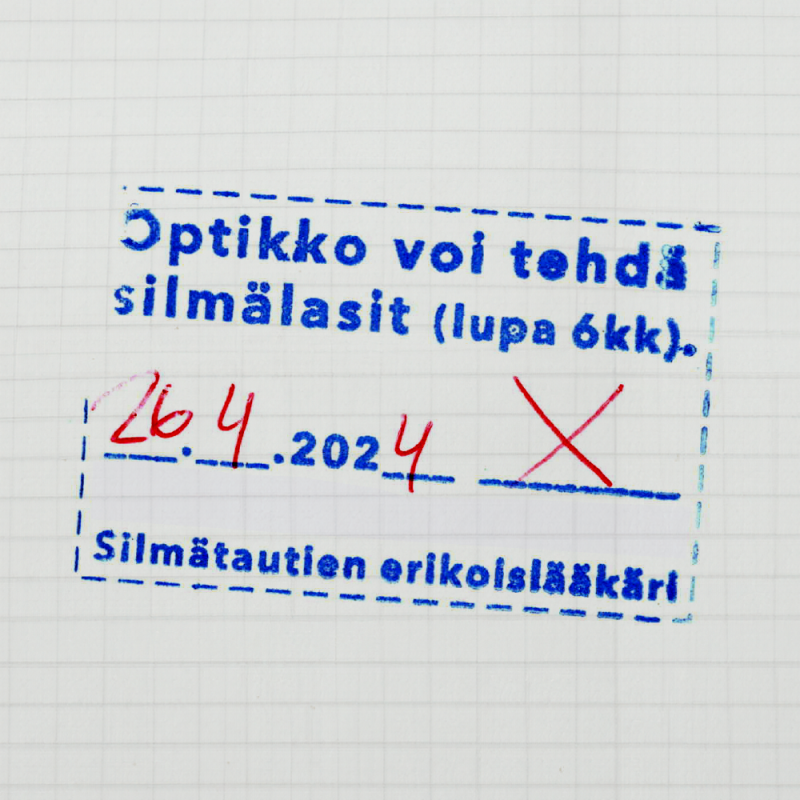 Optikko voi tehdä
silmälasit (lupa 6kk).
26.4.2024 X
Silmätautien erikoislääkäri